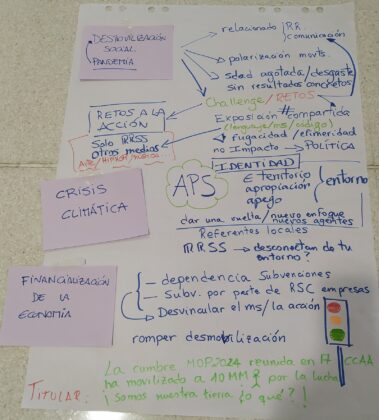 DESMOVILIZACIÓN
SOCIAL
PANDEMIA
relacionado RR.
comunicación
polarización movts.
sdad agotada/desgaste
sin resultados concretos
Challenge/RETOS
RETOS A LA
ACCIÓN
Solo RRSS
otros medios
Exposición # compartida
(lenguaje/ms/código)
fugacidad/efimeridad
no Impacto → POLÍTICA
IDENTIDAD
APS
E territorio
apropiación
apego
entorno
dar una vuelta/nuevo enfoque
nuevos agentes
Referentes locales
RRSS → desconectan de tu
entorno?
CRISIS
CLIMÁTICA
FINANCIALIZACIÓN
DE LA
ECONOMÍA
- dependencia Subvenciones
- Subv. por parte de RSC empresas
Desvincular el ms/la acción
romper desmobilización
TITULAR:
La cumbre MOP2024 reunida en 17 CCAA
ha movilizado a 10MM por la lucha
¡Somos nuestra tierra ¿o qué?!